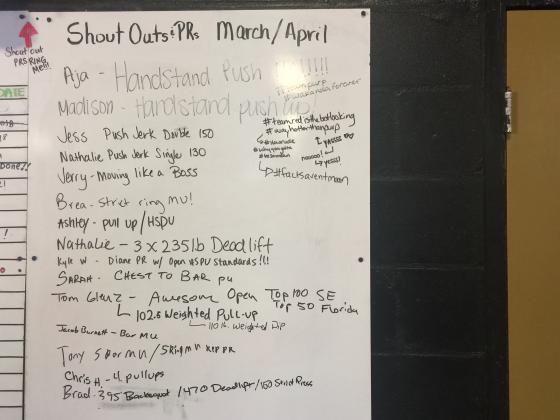 Shout out
PRS RING
ME!!!
DATE
Done!!
Shout Outs & PRs March/April
Aja - Handstand Push Up!!!!!!
Madison - Handstand push up!
#teamredisthebestlooking
#wayhotterthanpurp
Jess Push Jerk Double 150
Nathalie Push Jerk Single 130
yasss
nooooo!
yesss!
Jerry - Moving like a Boss
#factsaventmoon
Brea - Strict ring MU!
Ashley - pull up/HSPU
Nathalie - 3 x 235lb Deadlift
Kyle W - Diane PR w/ Open HSPU Standards!!!
Sarah - CHEST TO BAR pu
Tom Glenz - Awesome Open Top 100 SE
Top 50 Florida
102.5 Weighted Pull-up
110 lb. Weighted Dip
Jacob Burnett - Bar MU
Tony 5 Bar MU/5 Ring MU Rep PR
Chris H - 4 pullups
Brad - 395 Backsquat/470 Deadlift/160 Strict Press